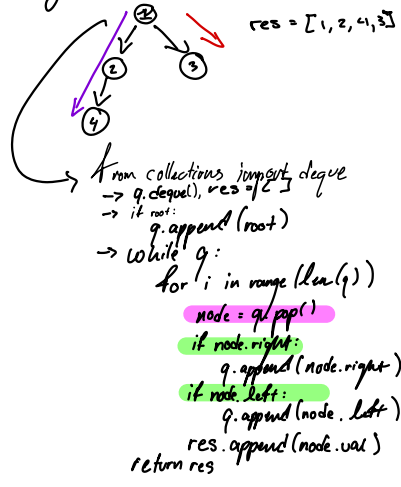 res = [1,2,4,3]
1
2
3
4
from collections import deque
-> q.deque(), res=[ ]
-> if root:
q.append(root)
-> while q:
for i in range(len(q))
node = q.pop()
if node.right:
q.append(node.right)
if node.left:
q.append(node.left)
res.append(node.val)
return res